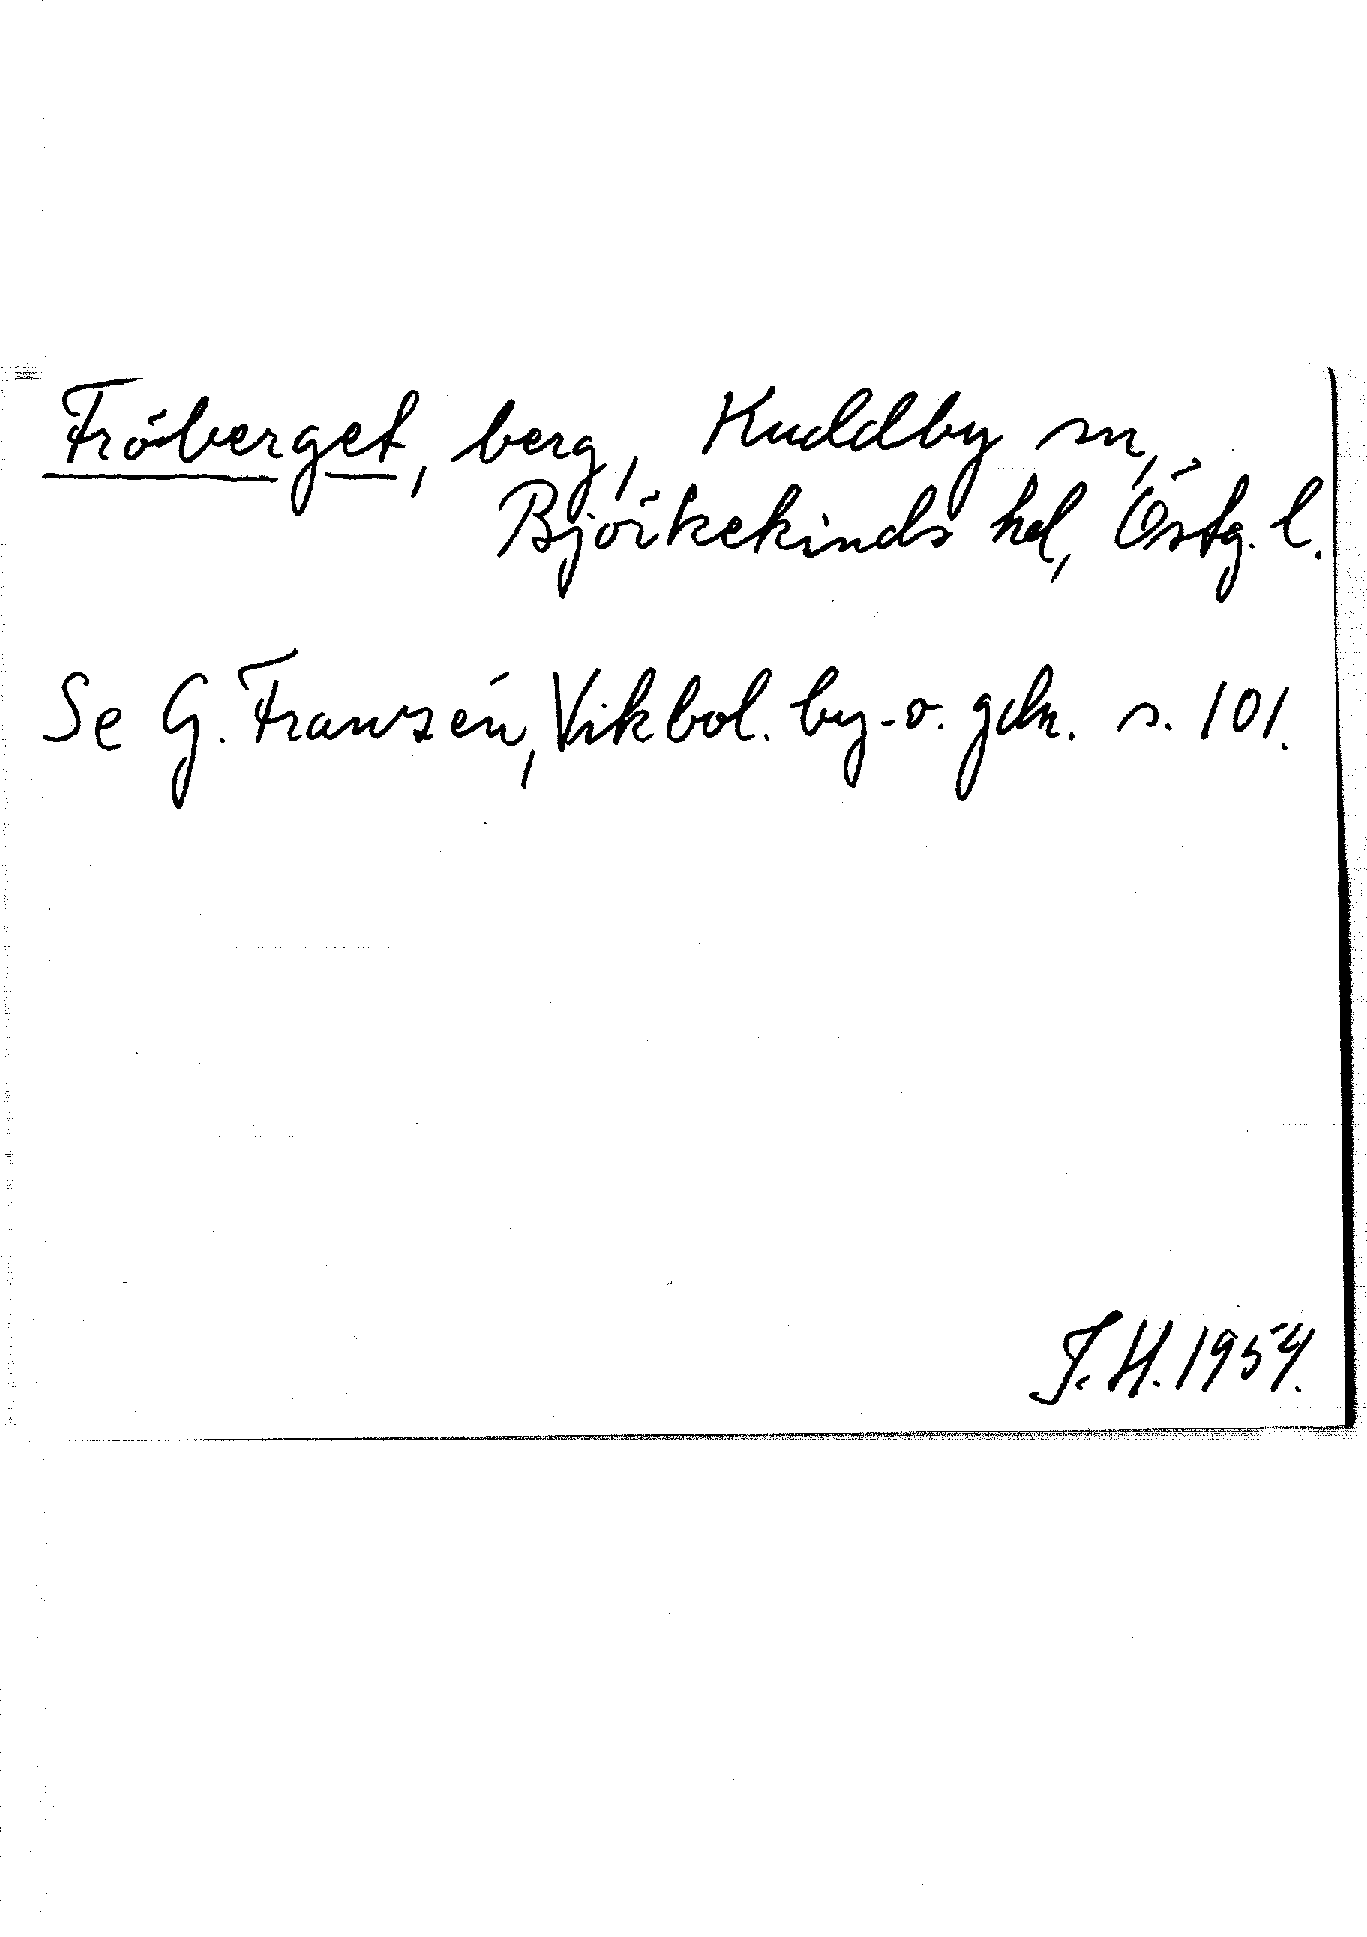 Fröberget, berg, Kuddby sn,
Björkekinds hd, Östg. l.
Se G. Franzén, Vikbol. by- o. gdn. s. 101.
J. H. 1954.